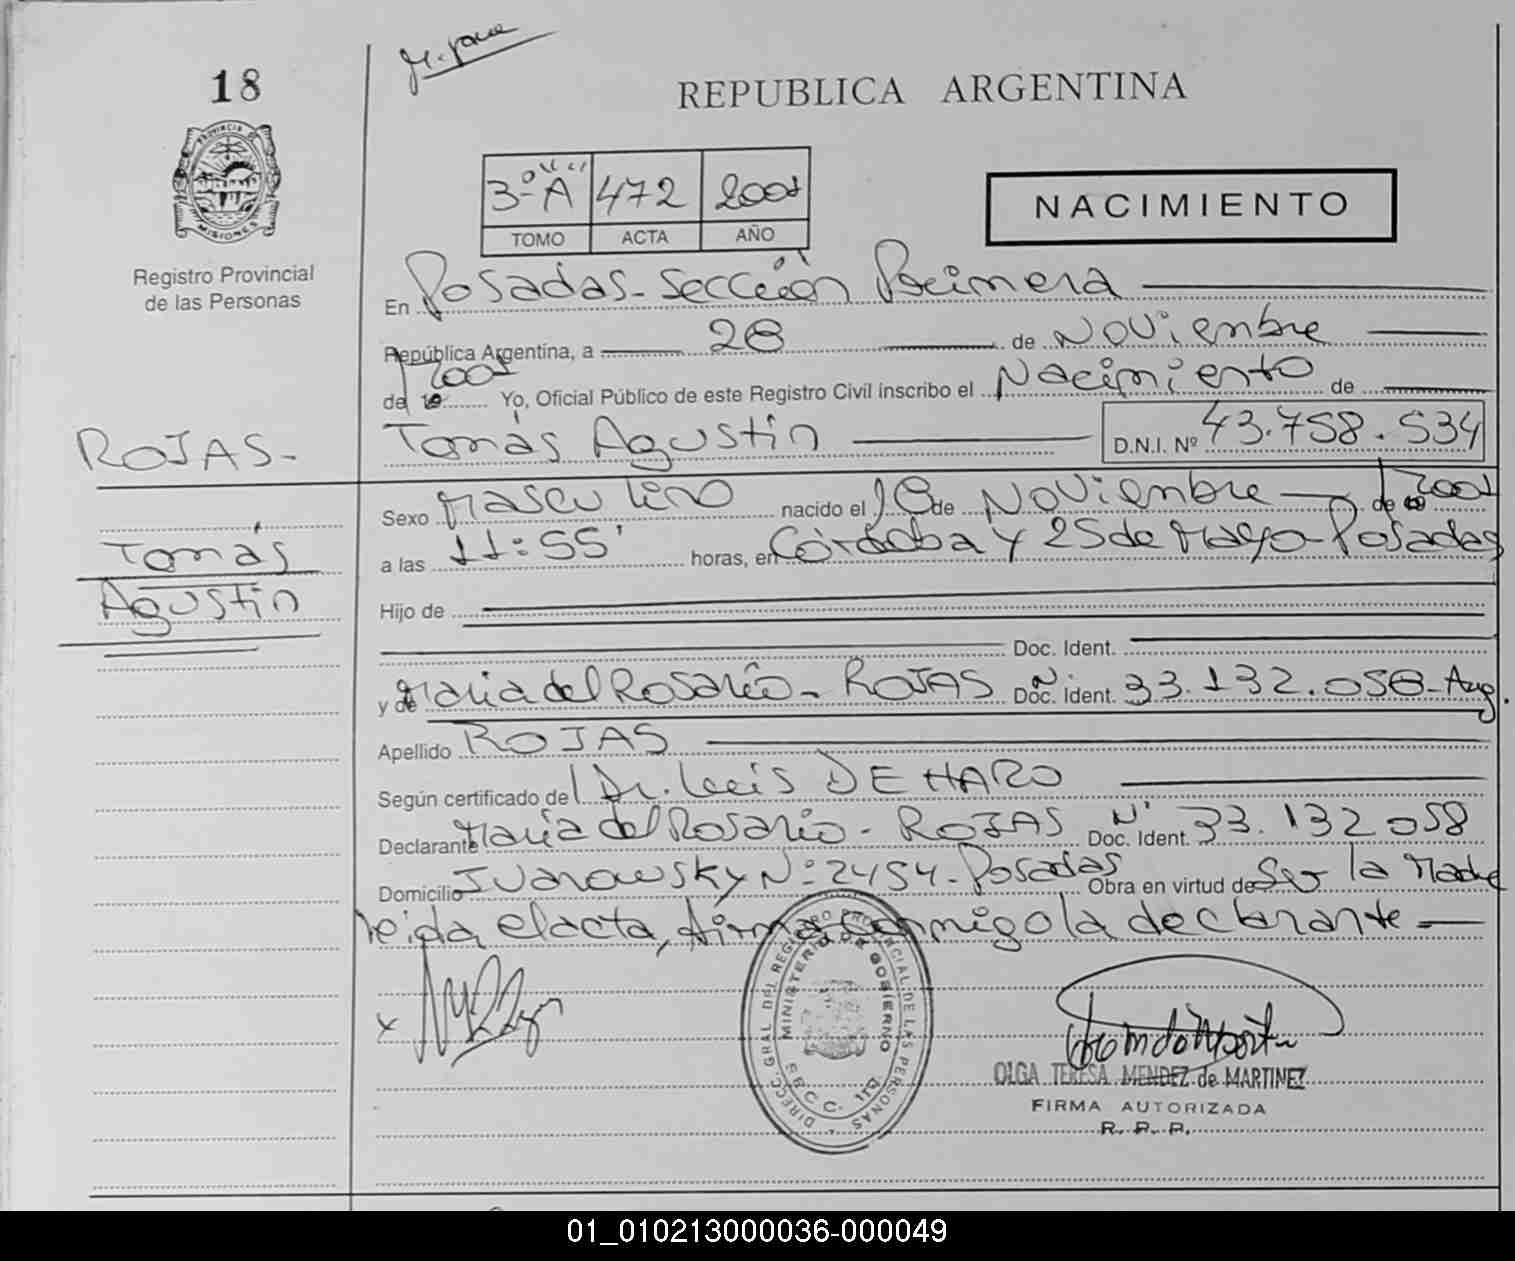 18
REPUBLICA ARGENTINA
PROVINCIA DE
MISIONES
3º "A" 472 2001
TOMO ACTA AÑO
NACIMIENTO
Registro Provincial
de las Personas
En Posadas - Sección Primera
República Argentina, a 28 de Noviembre
de 2001 Yo, Oficial Público de este Registro Civil inscribo el Nacimiento de
ROJAS - Tomás Agustín D.N.I. Nº 43.758.534
Sexo Masculino nacido el 18 de Noviembre de 2001
Tomás a las 11:55' horas, en Córdoba y 25 de Mayo - Posadas
Agustín Hijo de
Doc. Ident.
y de María del Rosario - ROJAS Doc. Ident. Nº 33.132.058 - Arg.
Apellido ROJAS
Según certificado del Dr. Luis DE HARO
Declarante María del Rosario - ROJAS Doc. Ident. Nº 33.132.058
Domicilio Yvanowsky Nº: 2454 - Posadas Obra en virtud de Ser la Madre
leida el acta, firma conmigo la declarante -
x
DIRECC. GRAL. DEL REGISTRO PROVINCIAL DE LAS PERSONAS
MINISTERIO DE GOBIERNO
SECC. 1ra
OLGA TERESA MENDEZ de MARTINEZ
FIRMA AUTORIZADA
R. P. P.
01_010213000036-000049